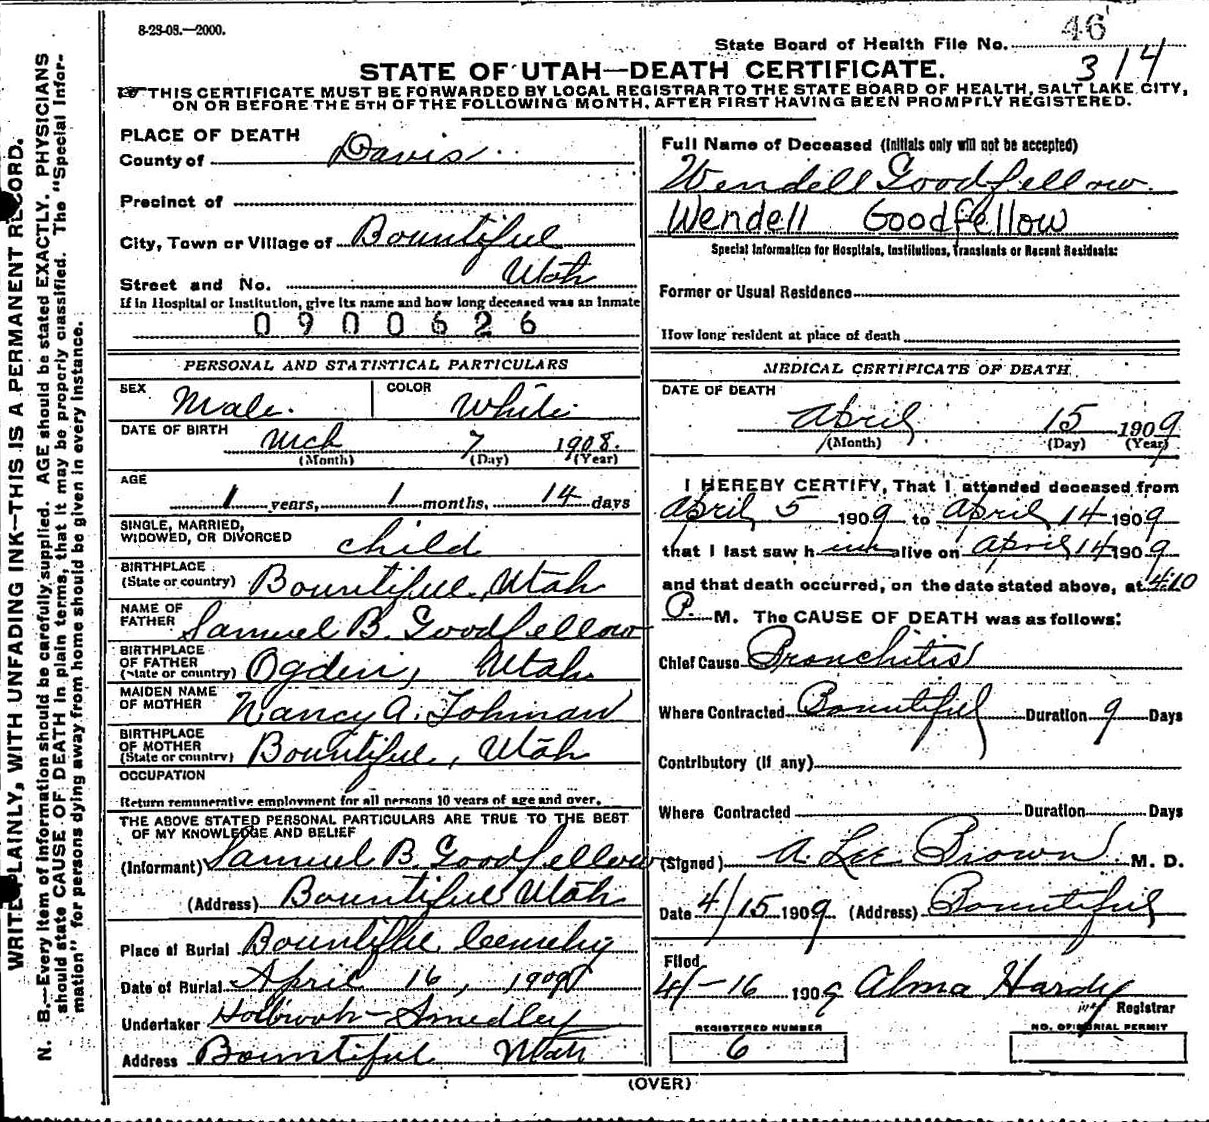 8-23-08.—2000.
46
State Board of Health File No.
314
STATE OF UTAH—DEATH CERTIFICATE.
THIS CERTIFICATE MUST BE FORWARDED BY LOCAL REGISTRAR TO THE STATE BOARD OF HEALTH, SALT LAKE CITY,
ON OR BEFORE THE 5TH OF THE FOLLOWING MONTH, AFTER FIRST HAVING BEEN PROMPTLY REGISTERED.
WRITE PLAINLY, WITH UNFADING INK—THIS IS A PERMANENT RECORD.
N. B.—Every item of information should be carefully supplied. AGE should be stated EXACTLY. PHYSICIANS
should state CAUSE OF DEATH in plain terms, that it may be properly classified. The "Special Infor-
mation" for persons dying away from home should be given in every instance.
PLACE OF DEATH
County of Davis
Precinct of
City, Town or Village of Bountiful
Street and No. Utah
If in Hospital or Institution, give its name and how long deceased was an inmate
0900626
PERSONAL AND STATISTICAL PARTICULARS
SEX Male. COLOR White
DATE OF BIRTH Mch 7 1908.
(Month) (Day) (Year)
AGE
1 years, 1 months, 14 days
SINGLE, MARRIED,
WIDOWED, OR DIVORCED child
BIRTHPLACE
(State or country) Bountiful, Utah
NAME OF
FATHER Samuel B. Goodfellow
BIRTHPLACE
OF FATHER
(State or country) Ogden, Utah
MAIDEN NAME
OF MOTHER Nancy A. Tolman
BIRTHPLACE
OF MOTHER
(State or country) Bountiful, Utah
OCCUPATION
Return remunerative employment for all persons 10 years of age and over.
THE ABOVE STATED PERSONAL PARTICULARS ARE TRUE TO THE BEST
OF MY KNOWLEDGE AND BELIEF
(Informant) Samuel B Goodfellow
(Address) Bountiful Utah
Place of Burial Bountiful Cemetery
Date of Burial April 16, 1909
Undertaker Holbrook-Smedley
Address Bountiful Utah
Full Name of Deceased (Initials only will not be accepted)
Wendell Goodfellow.
Wendell Goodfellow
Special Information for Hospitals, Institutions, Transients or Recent Residents:
Former or Usual Residence
How long resident at place of death
MEDICAL CERTIFICATE OF DEATH
DATE OF DEATH
April 15 1909
(Month) (Day) (Year)
I HEREBY CERTIFY, That I attended deceased from
April 5 1909 to April 14 1909
that I last saw him alive on April 14 1909
and that death occurred, on the date stated above, at 4:10
P. M. The CAUSE OF DEATH was as follows:
Chief Cause Bronchitis
Where Contracted Bountiful Duration 9 Days
Contributory (if any)
Where Contracted Duration Days
(Signed) A Lee Brown M. D.
Date 4/15 1909 (Address) Bountiful
Filed
4/-16 1909 Alma Hardy
Registrar
REGISTERED NUMBER
6
NO. OF BURIAL PERMIT
(OVER)